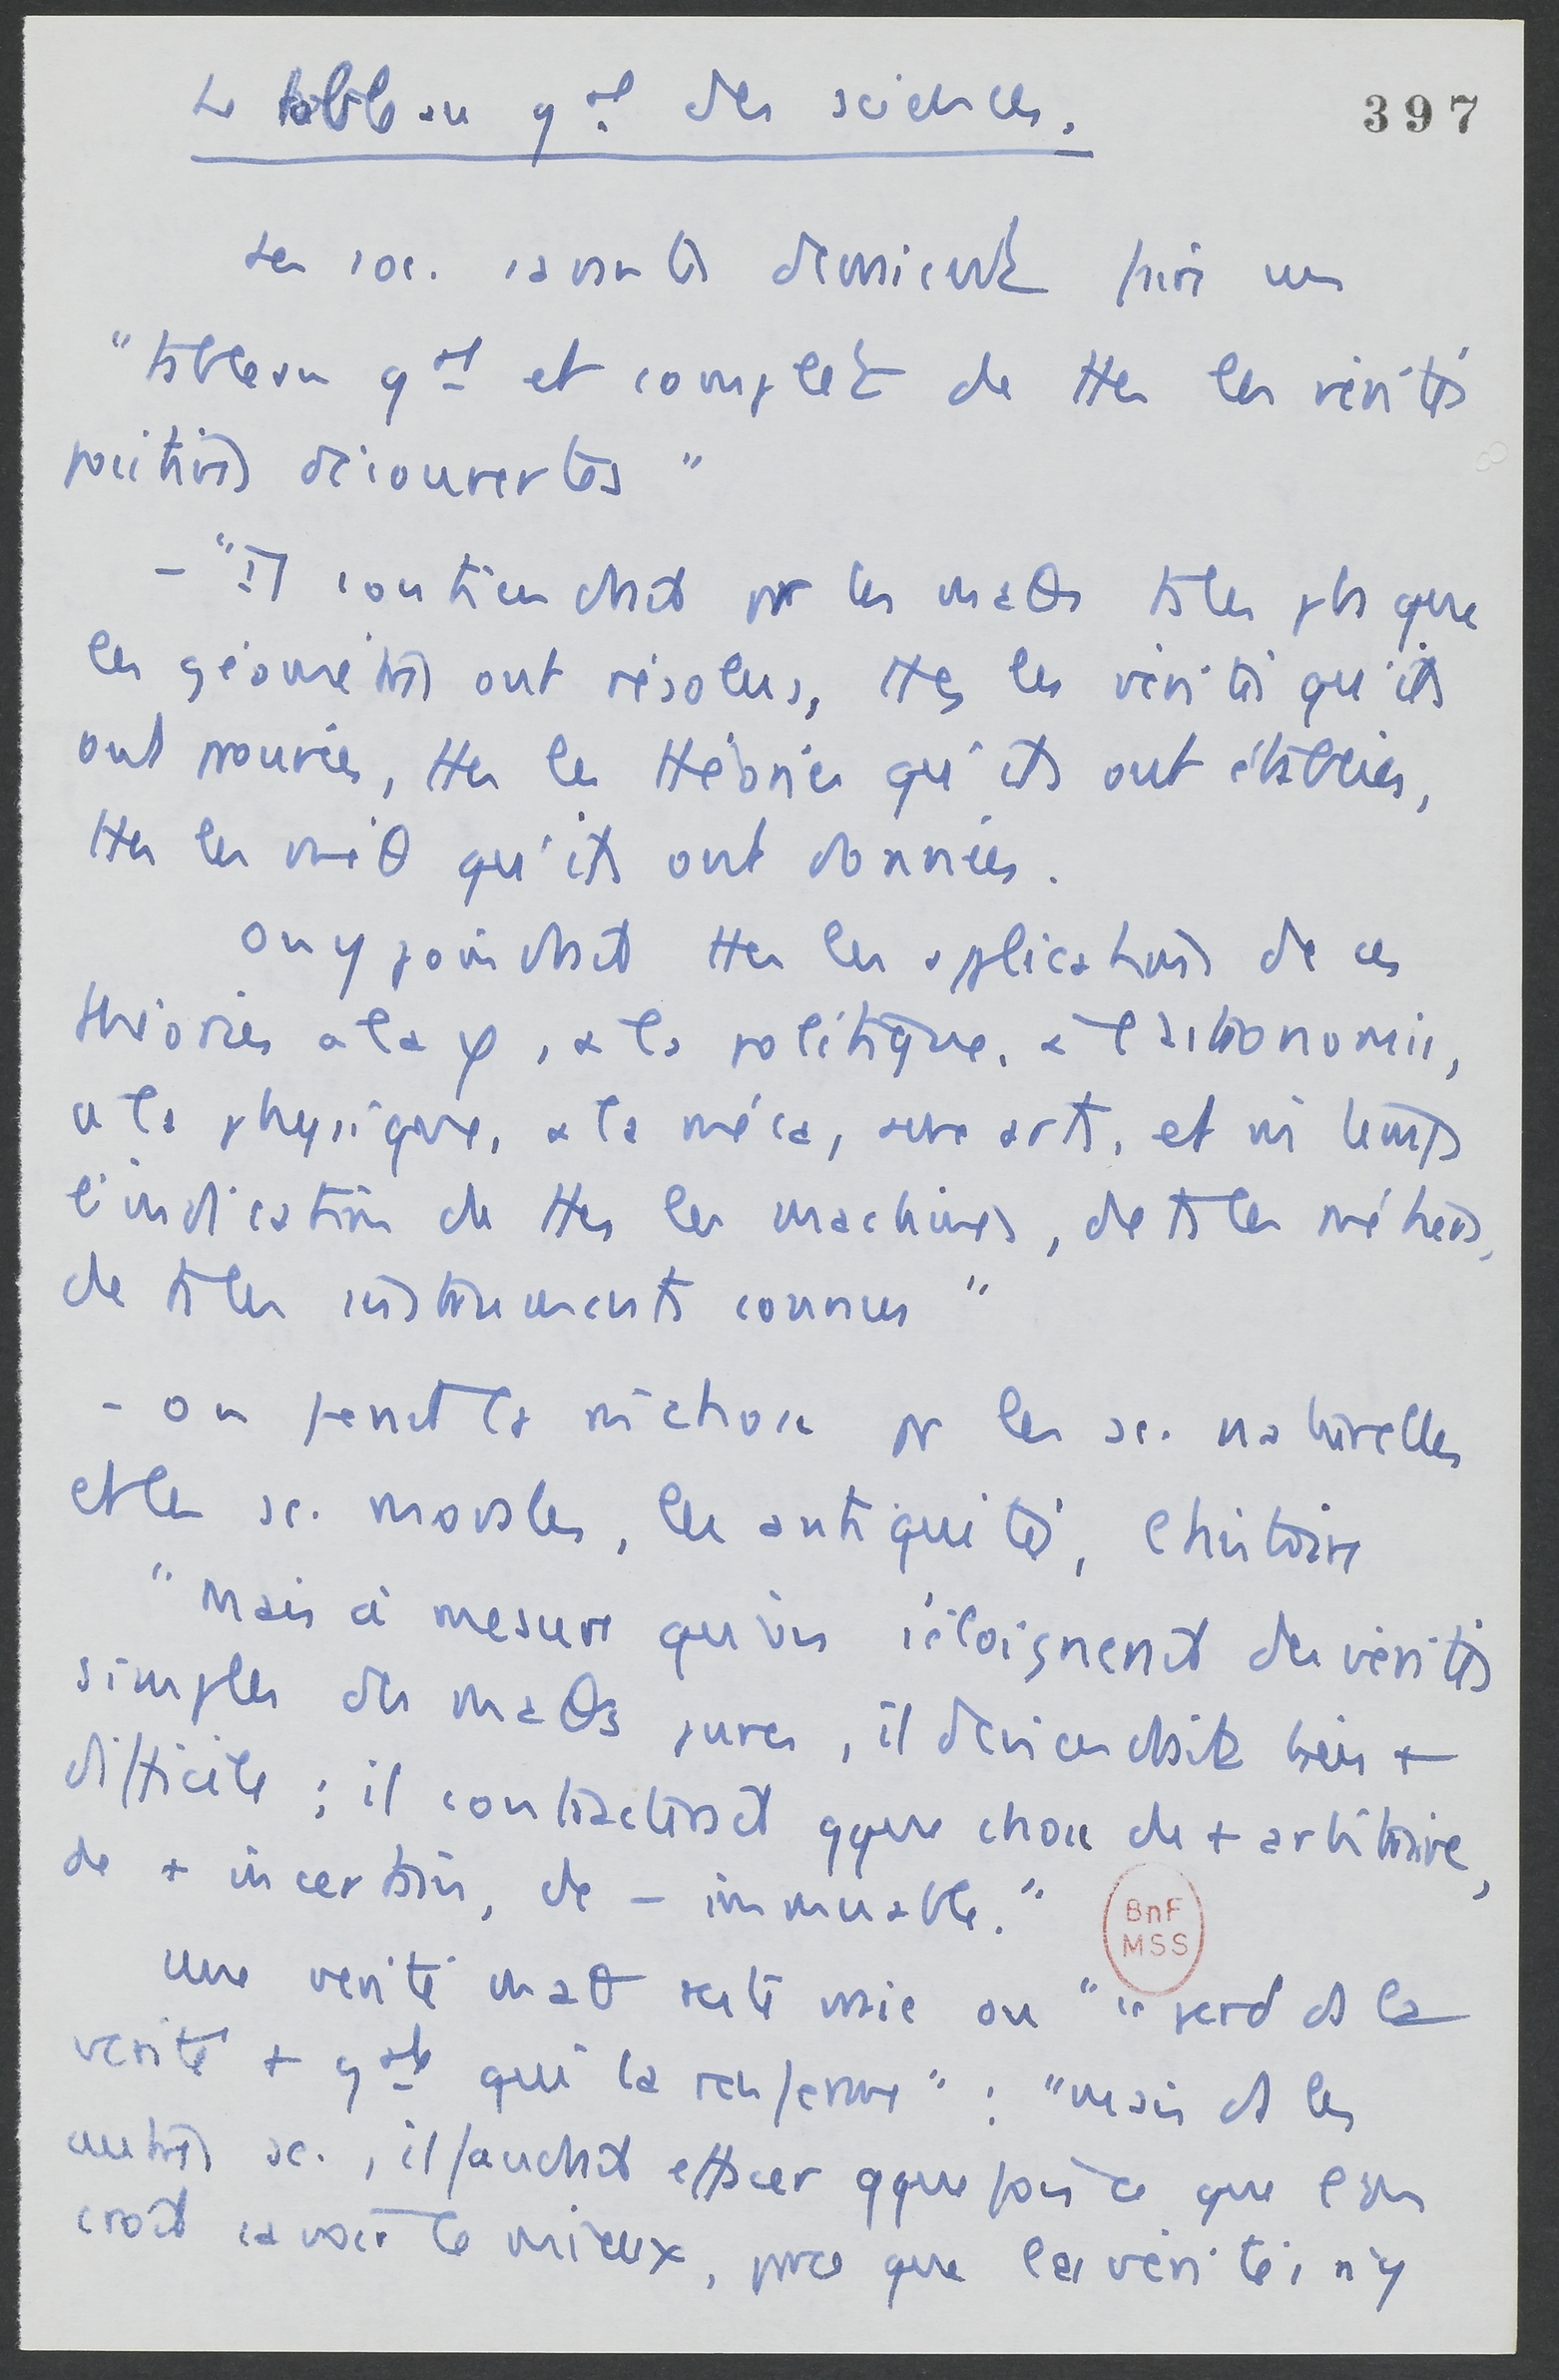 Le tableau gal des sciences.
397
Les soc. savantes devraient faire un
"tableau gal et complet de ttes les vérités
positives découvertes"
- "Il contiendrait pr les maθs ts les pbs que
les géomètres ont résolus, ttes les vérités qu'ils
ont prouvées, ttes les théories qu'ils ont établies,
ttes les méθ qu'ils ont données.
On y joindrait ttes les applications de ces
théories a la φ, a la politique, a l'astronomie,
a la physique, a la méca, aux arts, et en temps
l'indication de ttes les machines, de ts les métiers,
de ts les instruments connus"
- On ferait la m chose pr les sc. naturelles
et les sc. morales, les antiquités, l'histoire
"Mais à mesure qu'on s'éloignerait des vérités
simples des maθs pures, il deviendrait bien +
difficile ; il contracterait qque chose de + arbitraire,
de + incertain, de - immuable."
BnF
MSS
Une vérité maθ reste vraie ou "se perd ds la
vérité + gale qui la renferme" : "mais ds les
autres sc., il faudrait effacer qquefois ce que l'on
croit savoir le mieux, parce que les vérités n'y